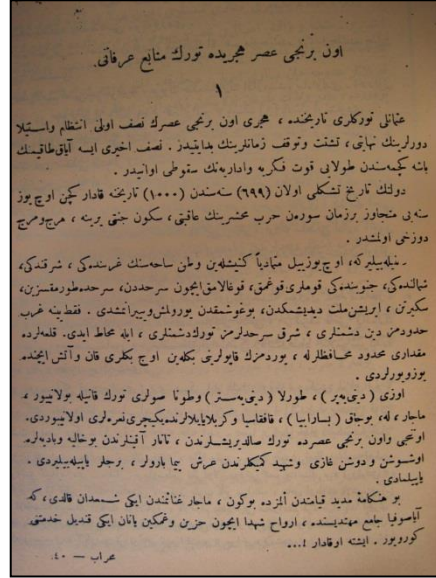 اون برنجی عصر هجریده تورك منابع عرفانی.
١
عثمانلی تورکلری تاریخنده ، هجری اون برنجی عصرك نصف اولی انتظام واستیلا
دورلرینك نهایتی ، تشتت وتوقف زمانلرینك بدایتیدز. نصف اخیری ایسه آیاق طاقیمنك
باشه کچمه‌سندن طولایی قوت فکریه واداریه‌نك سقوطی اوانیدر .
دولتك تاریخ تشکلی اولان (٦٩٩) سنه‌سندن (١٠٠٠) تاریخنه قادار کچن اوچ یوز
سنه‌یی متجاوز برزمان سورەن حرب محشرینك عاقبتی ، سکون جنتی یرینه ، هرج‌ومرج
دوزخی اولمشدر .
دینیله‌بیلیرکه، اوچ یوزییل متمادیاً کنیشله‌ین وطن ساحه‌سنك غربنده‌کی ، شرقنده‌کی،
شمالنده‌کی، جنوبنده‌کی قوملری قوغمق، قوغالامق ایچون سرحددن، سرحده طورمقسزین،
سکیرتن ، ایریشن ملت دیدیشمکدن، بوغوشمقدن یورولمش ویپرانمشدی . فقط ینه غرب
حدودمز دین دشمنلری ، شرق سرحدلرمز تورك دشمنلری ، ایله محاط ایدی. قلعه‌لرده
مقداری محدود محافظلرله ، یوردمزك قاپولرینی بکله‌ین اوج بکلری قان وآتش ایچنده
یوزیورلردی .
اوزی ( دنی‌یه‌پر ) ، طورلا ( دنی‌یه‌ستر ) وطونا صولری تورك قانیله بولانییور ،
ماجار ، له، بوجاق ( بسارابیا ) ، قافقاسیا وکربلا یایلالرنده یکیچری نعره‌لری اولانییوردی.
اونجی واون برنجی عصرده تورك صالدیریشلرندن ، تاتار آقینلرندن بوخالیه وبادیه‌لره
اوشوشن ودوشن غازی وشهید کمیکلرندن عرش پیما بارولر ، برجلر یاپیله‌بیلیردی .
یاپیلمادی .
بو هنکامۀ مدید قیامتدن المزده بوکون ، ماجار غنائمندن ایکی شمعدان قالدی ، که
آیاصوفیا جامع مهتدیسنده ، ارواح شهدا ایچون حزین وغمکین یانان ایکی قندیل خدمتنی
کورویور . ایشته اوقادار !...
محراب — ٤٠